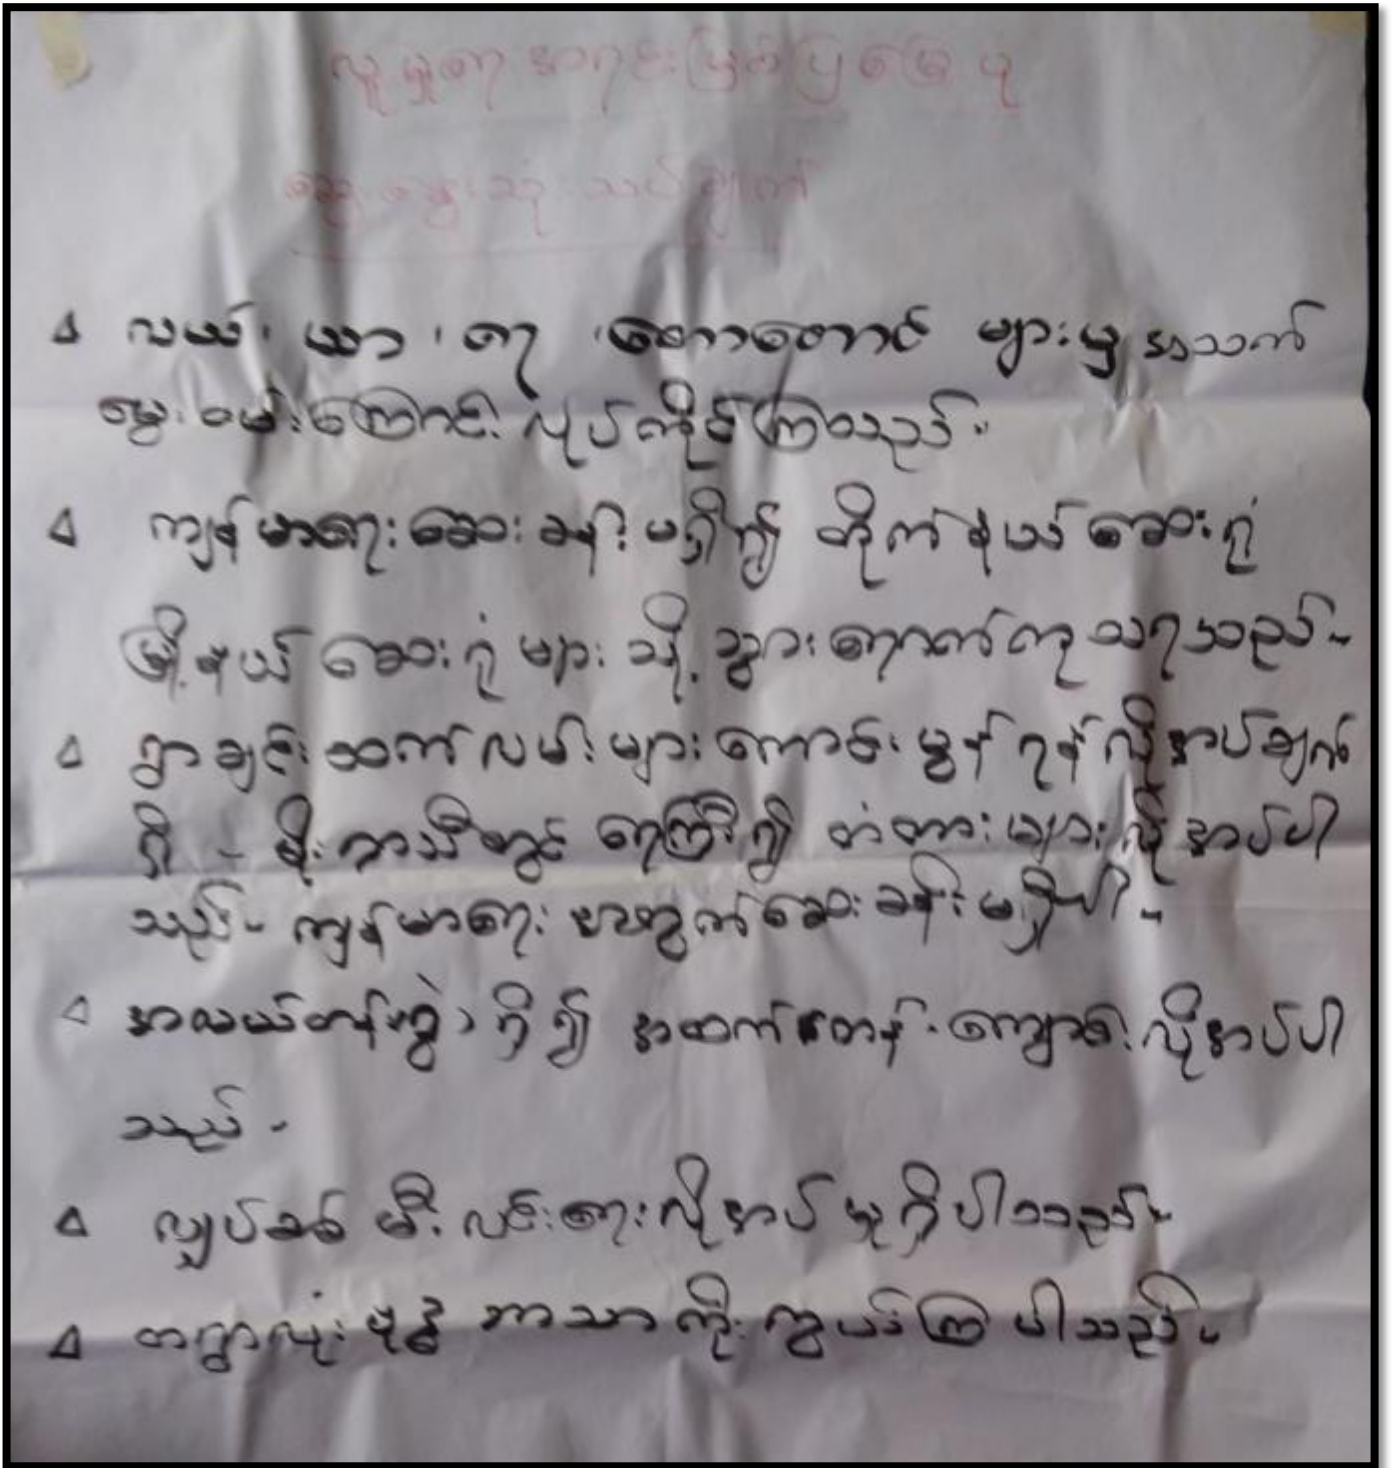 လူမှုရေးအရင်းအမြစ်ပြမြေပုံ
ဆွေးနွေးသုံးသပ်ချက်
∆ လယ်၊ ယာ၊ ရေ၊ တောတောင် များမှ အသက်
မွေးဝမ်းကြောင်း လုပ်ကိုင်ကြသည်။
∆ ကျန်မာရေးဆေးခန်းမရှိ၍ တိုက်နယ်ဆေးရုံ
မြို့နယ်ဆေးရုံများသို့ သွားရောက်ကုသရသည်။
∆ ရွာချင်းဆက်လမ်းများ ကောင်းမွန်ရန်လိုအပ်ချက်
ရှိ - မိုးရာသီတွင် ရေကြီး၍ တံတားများလိုအပ်ပါ
သည်။ ကျန်မာရေးအတွက်ဆေးခန်းမရှိပါ။
∆ အလယ်တန်းခွဲ ရှိ၍ အထက်တန်းကျောင်းလိုအပ်ပါ
သည်။
∆ လျှပ်စစ်မီးလင်းရေးလိုအပ်မှုရှိပါသည်။
∆ တရွာလုံး ဗုဒ္ဓဘာသာကိုးကွယ်ကြပါသည်။